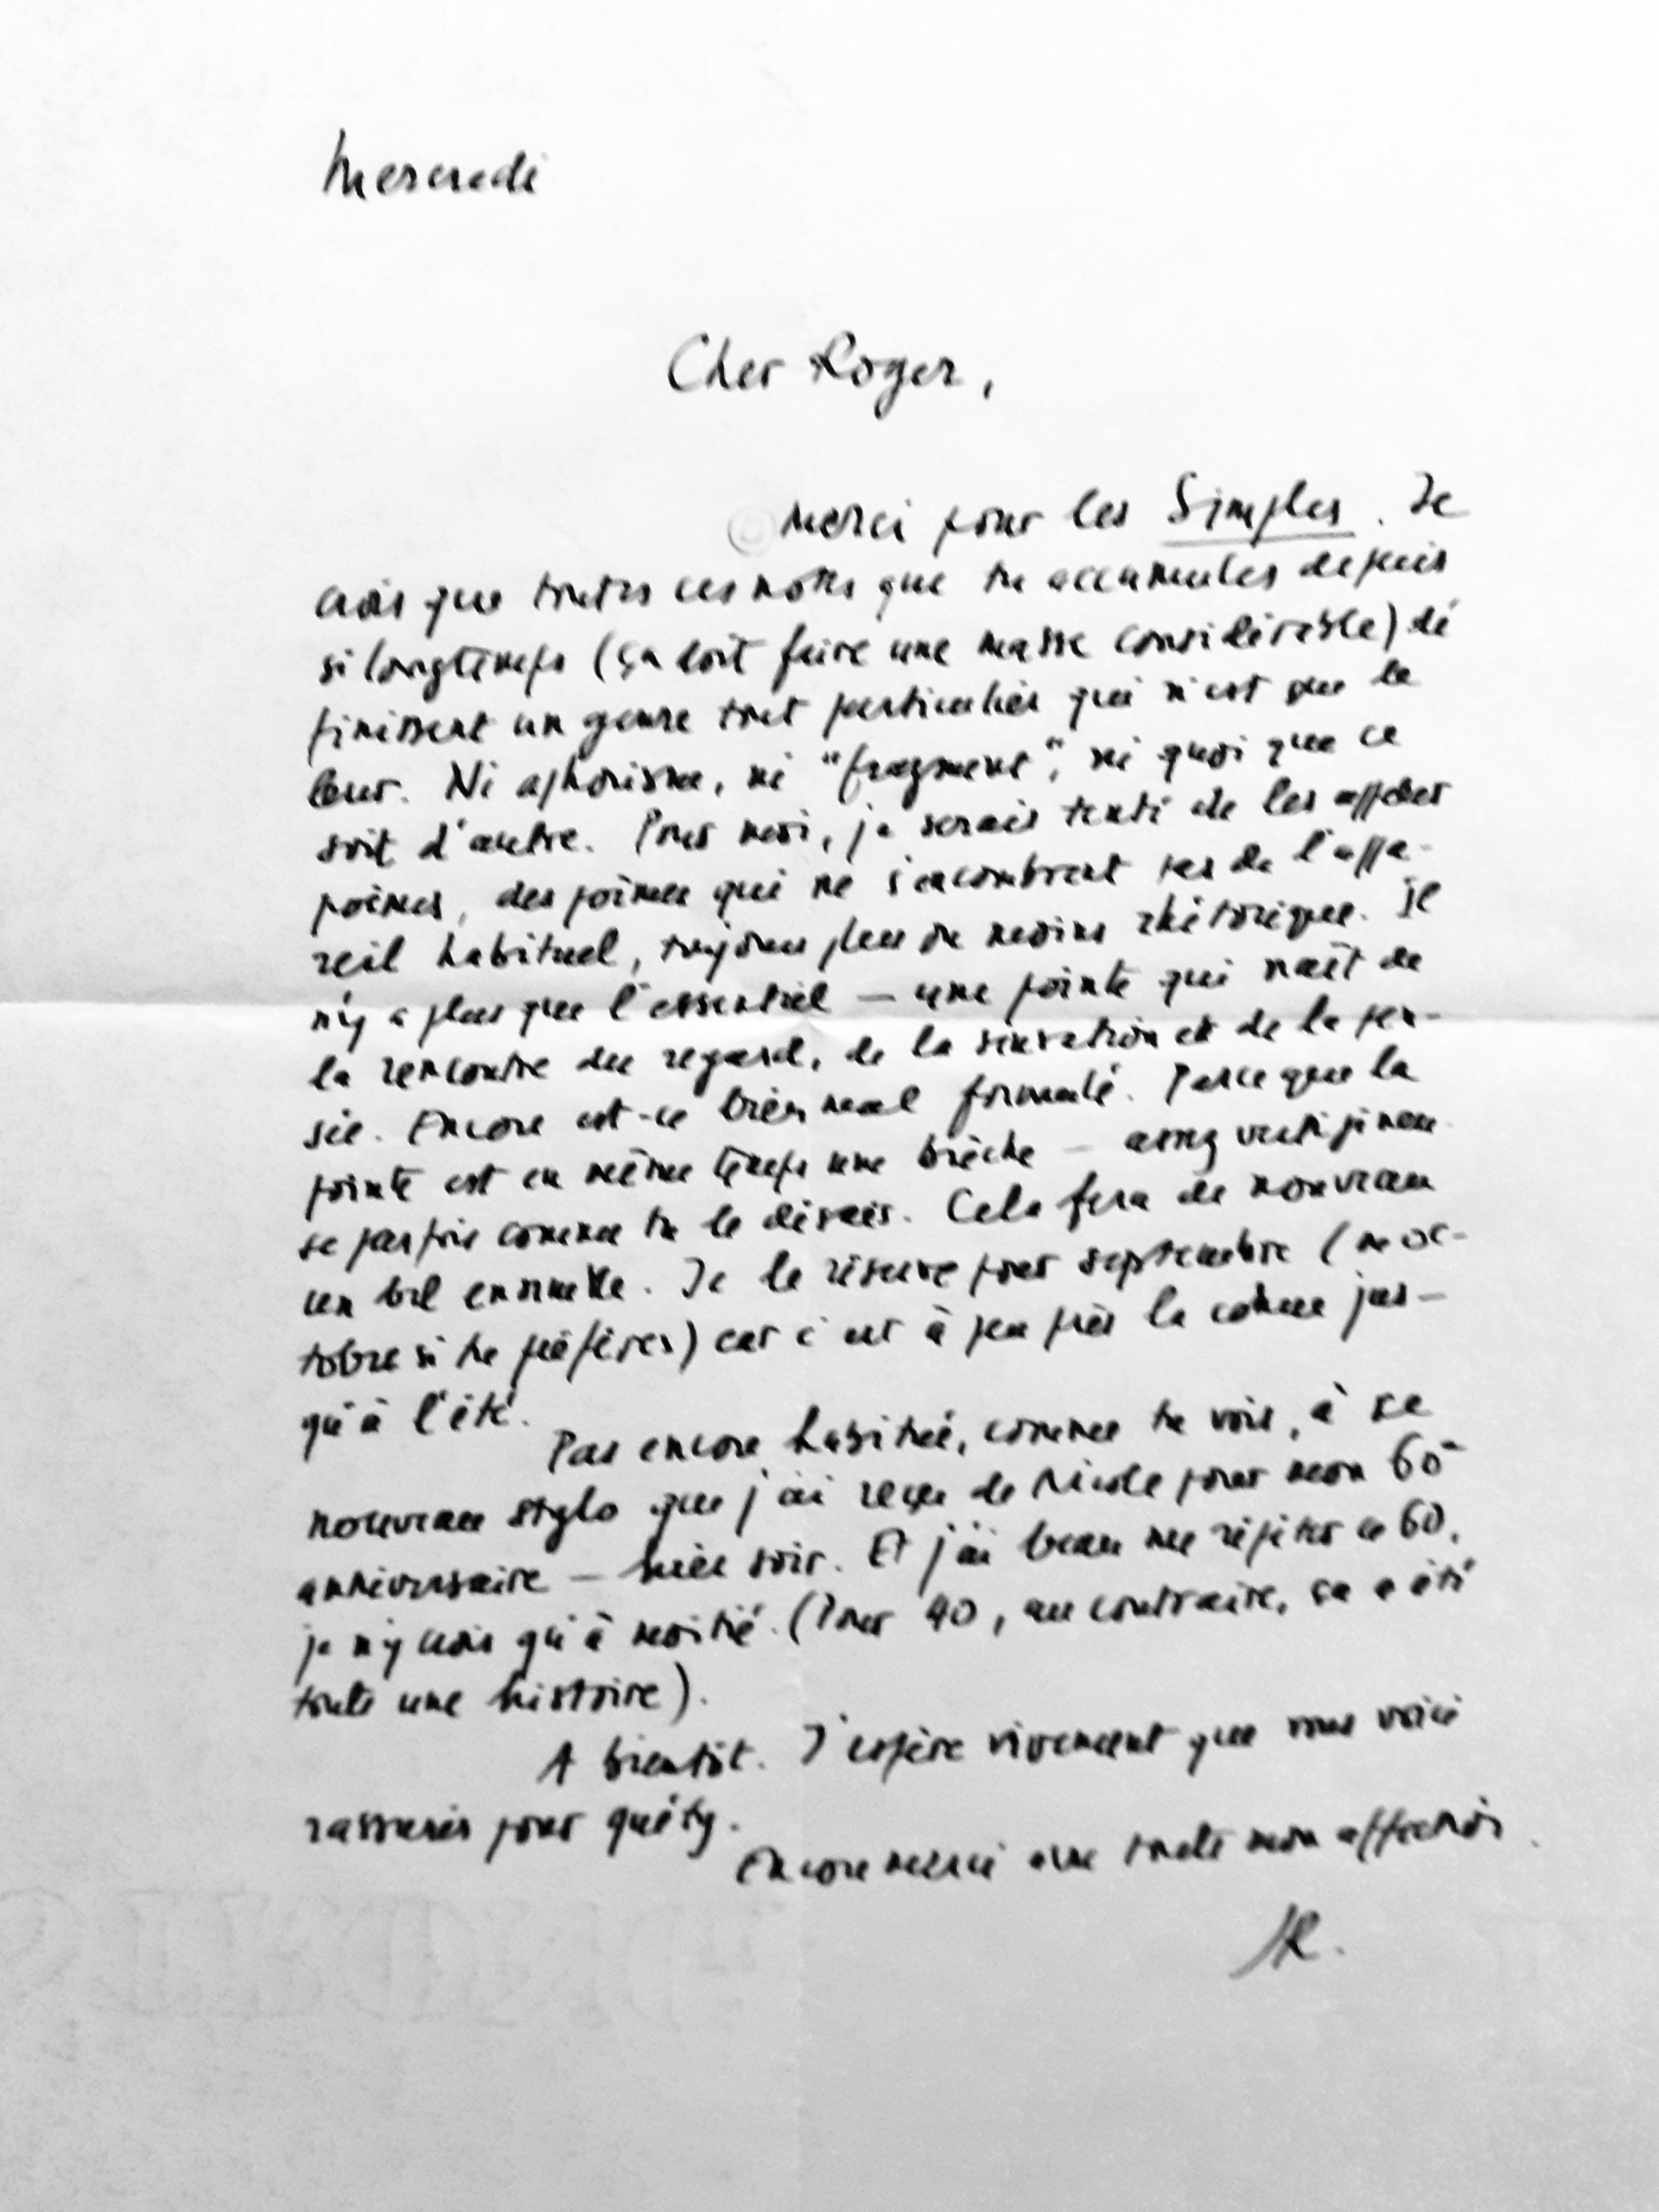 Mercredi
Cher Roger,
Merci pour les Simples. Je
crois que toutes ces notes que tu accumules depuis
si longtemps (ça doit faire une masse considérable) dé
finissent un genre tout particulier qui n'est que le
leur. Ni aphorisme, ni "fragment", ni quoi que ce
soit d'autre. Pour moi, je serais tenté de les appeler
poèmes, des poèmes qui ne s'encombrent pas de l'appa-
reil habituel, toujours plus ou moins rhétorique. Il
n'y a plus que l'essentiel — une pointe qui naît de
la rencontre du regard, de la sensation et de la pen-
sée. Encore est-ce bien mal formulé. Parce que la
pointe est en même temps une brèche — assez vertigineu
se parfois comme tu le disais. Cela fera de nouveau
un bel ensemble. Je le réserve pour septembre (ou oc-
tobre si tu préfères) car c'est à peu près la cohue jus-
qu'à l'été.
Pas encore habitué, comme tu vois, à ce
nouveau stylo que j'ai reçu de Nicole pour mon 60e
anniversaire — hier soir. Et j'ai beau me répéter ce 60,
je n'y crois qu'à moitié. (Pour 40, au contraire, ça a été
toute une histoire).
A bientôt. J'espère vivement que vous voici
rassurés pour Guéty.
Encore merci avec toute mon affection.